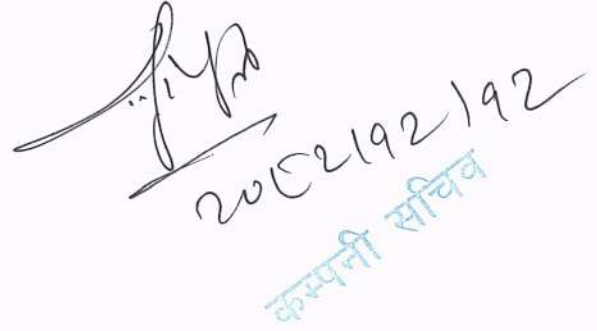 २०८२।१२।१२
कम्पनी सचिव